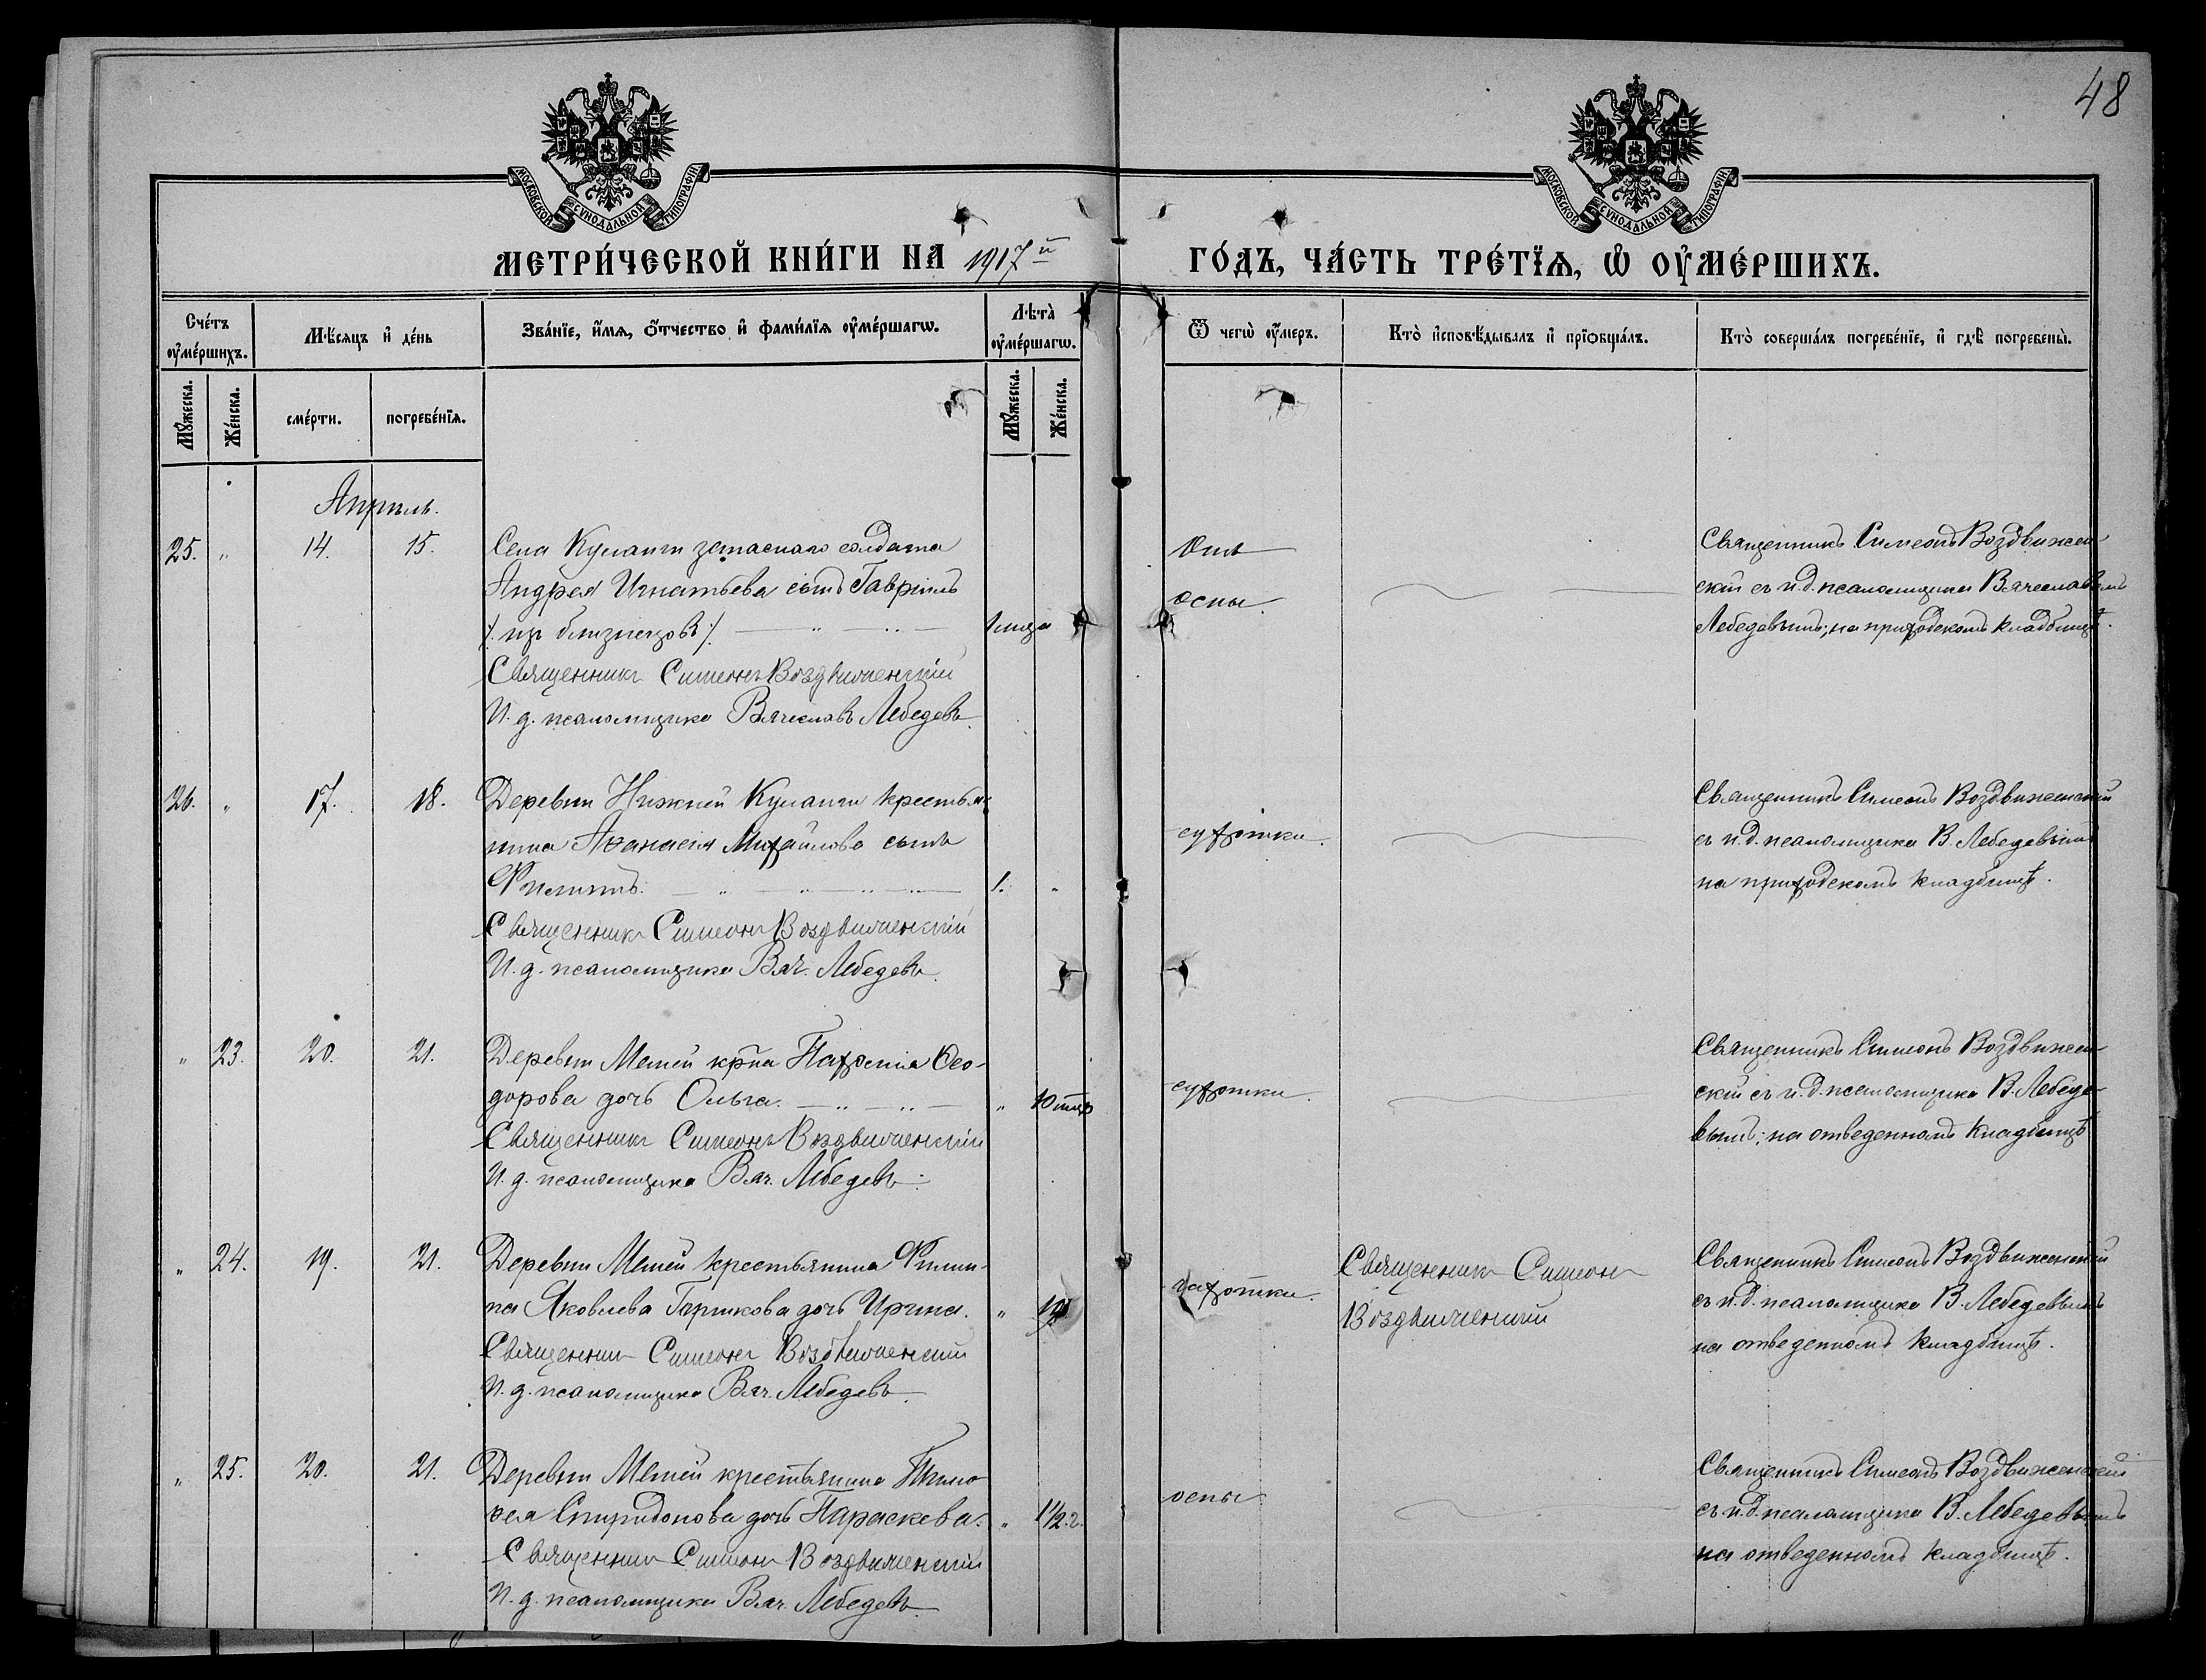 48
МОСКОВСКОЙ СѴНОДАЛЬНОЙ ТИПОГРАФІИ
МОСКОВСКОЙ СѴНОДАЛЬНОЙ ТИПОГРАФІИ
МЕТРИ́ЧЕСКОЙ КНИ́ГИ НА 1917й ГО́ДЪ, ЧА́СТЬ ТРЕ́ТЇѦ, Ѡ҆ ОУ҆МЕ́РШИХЪ.
Сче́тъ оу҆ме́ршихъ.
Мѣ́сяцъ и҆ де́нь
Зва́нїе, и҆́мѧ, ѻ҆́тчество и҆ фами́лїѧ оу҆ме́ршагѡ.
Лѣ́та̀ оу҆ме́ршагѡ.
Ѿ чегѡ̀ оу҆́меръ.
Кто̀ и҆сповѣ́дывалъ и҆ прїѡбща́лъ.
Кто̀ соверша́лъ погребе́нїе, и҆ гдѣ̀ погребены̀.
Мꙋ́жеска.
Же́нска.
сме́рти.
погребе́нїѧ.
Мꙋ́жеска.
Же́нска.
Апрѣль.
25. " 14. 15.
Села Куланги запаснаго солдата
Андрея Игнатьева сынъ Гавріилъ
/. изъ близнецовъ ./ 1 мѣсяца
Священникъ Симеонъ Воздвиженскій
И. д. псаломщика Вячеславъ Лебедевъ.
Отъ
оспы.
Священникъ Симеонъ Воздвижен-
скій съ и. д. псаломщика Вячеславомъ
Лебедевымъ; на приходскомъ кладбищѣ.
26. " 17. 18.
Деревни Нижней Куланги крестья-
нина Аѳанасія Михайлова сынъ
Филиппъ. 1. "
Священникъ Симеонъ Воздвиженскій
И. д. псаломщика Вяч. Лебедевъ.
сухотки.
Священникъ Симеонъ Воздвиженскій
съ и. д. псаломщика В. Лебедевымъ
на приходскомъ кладбищѣ.
" 23. 20. 21.
Деревни Мемей кр-на Пахомія Ѳео-
дорова дочь Ольга. " 10 мцв
Священникъ Симеонъ Воздвиженскій
И. д. псаломщика Вяч. Лебедевъ.
сухотки.
Священникъ Симеонъ Воздвижен-
скій съ и. д. псаломщика В. Лебеде-
вымъ; на отведенномъ кладбищѣ
" 24. 19. 21.
Деревни Мемей крестьянина Филип-
па Яковлева дочь Ирина. "
Священникъ Симеонъ Воздвиженскій
И. д. псаломщика Вяч. Лебедевъ.
чахотки.
Священникъ Симеонъ
Воздвиженскій
Священникъ Симеонъ Воздвиженскій
съ и. д. псаломщика В. Лебедевымъ
на отведенномъ кладбищѣ.
" 25. 20. 21.
Деревни Мемей крестьянина Тимо-
ѳея Спиридонова дочь Параскева. " 1½ г.
Священникъ Симеонъ Воздвиженскій
И. д. псаломщика Вяч. Лебедевъ.
оспы
Священникъ Симеонъ Воздвиженскій
съ и. д. псаломщика В. Лебедевымъ
на отведенномъ кладбищѣ.